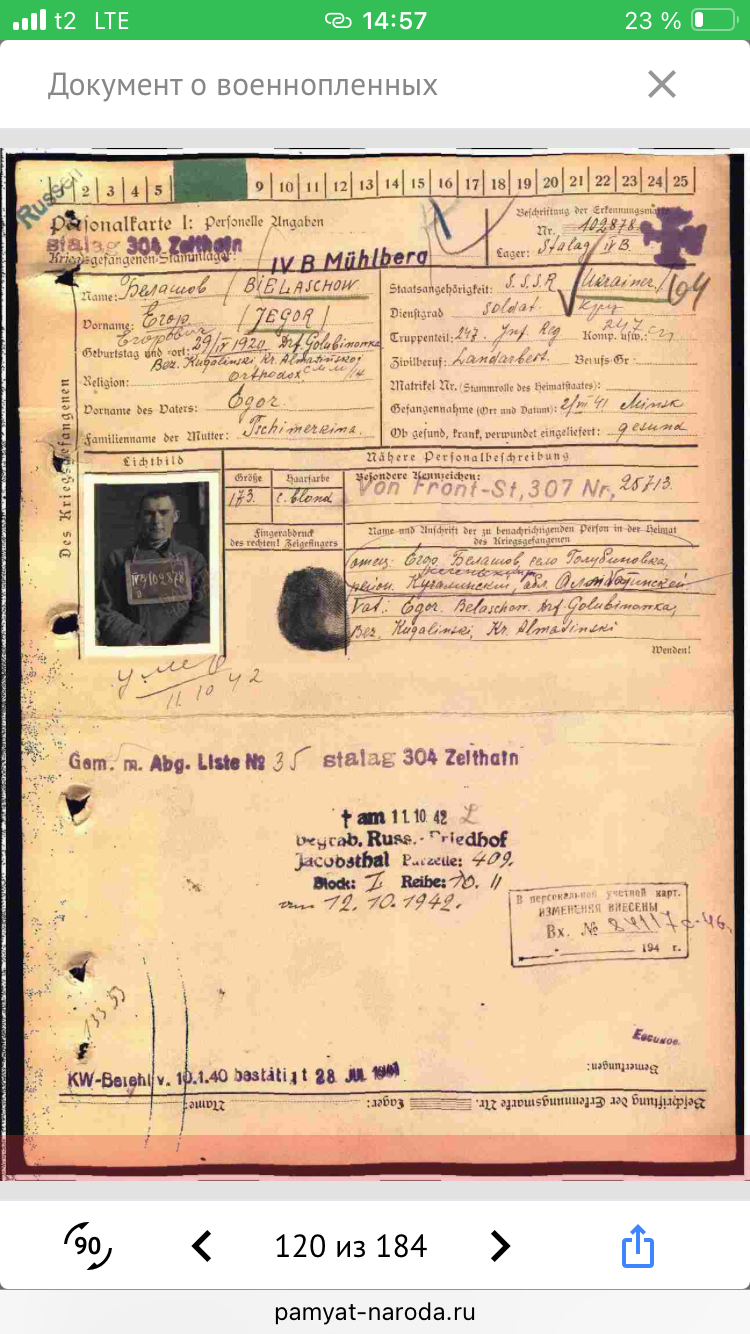 t2 LTE 14:57 23 %
Документ о военнопленных
Russen
2 3 4 5 9 10 11 12 13 14 15 16 17 18 19 20 21 22 23 24 25
Personalkarte I: Personelle Angaben
Beschriftung der Erkennungsmarke
Nr. 102878
stalag 304 Zeithain
Kriegsgefangenen-Stammlager:
IV B Mühlberg
Lager: Stalag IV B
Des Kriegsgefangenen
Name: Белашов / BIELASCHOW
Staatsangehörigkeit: S.S.S.R / Ukrainer /
Vorname: Егор / JEGOR /
Егорович
Dienstgrad soldat
Geburtstag und -ort: 29/IV 1920 Drf Golubinonka
Bez. Kugolinski, Kr. Almatinskoj
Truppenteil: 247. Inf. Reg Komp. usw.: 247 сп
Religion: Orthodox
Zivilberuf: Landarbeit. Berufs-Gr.:
Matrikel Nr. (Stammrolle des Heimatstaates):
Vorname des Vaters: Egor
Gefangennahme (Ort und Datum): 2/VII 41 Minsk
Familienname der Mutter: Tschimerkina
Ob gesund, krank, verwundet eingeliefert: gesund
Lichtbild
Nähere Personalbeschreibung
Größe Haarfarbe Besondere Kennzeichen:
173 c. blond
Von Front-St,307 Nr, 25713.
Fingerabdruck
des rechten! Zeigefingers
Name und Anschrift der zu benachrichtigenden Person in der Heimat
des Kriegsgefangenen
отец: Егор Белашов, село Голубиновка,
район. Кугалинский, обл.
Vat: Egor. Belaschow. Drf Golubinonka,
Bez. Kugalinski, Kr. Almatinski
IV B 102878
Wenden!
умер
11.10.42
Gem. m. Abg. Liste № 35 stalag 304 Zeithain
† am 11.10.42
begrab. Russ.-Friedhof
Jacobsthal Parzelle: 409.
Block: I Reihe: 10. II
am 12.10.1942.
В персональной учетной карт.
ИЗМЕНЕНИЯ ВНЕСЕНЫ
Вх. №
194 г.
KW-Befehl v. 10.1.40 bestätigt 28 JUL
Bemerkungen:
Beschriftung der Erkennungsmarke Nr. Lager: Name:
120 из 184
90
pamyat-naroda.ru